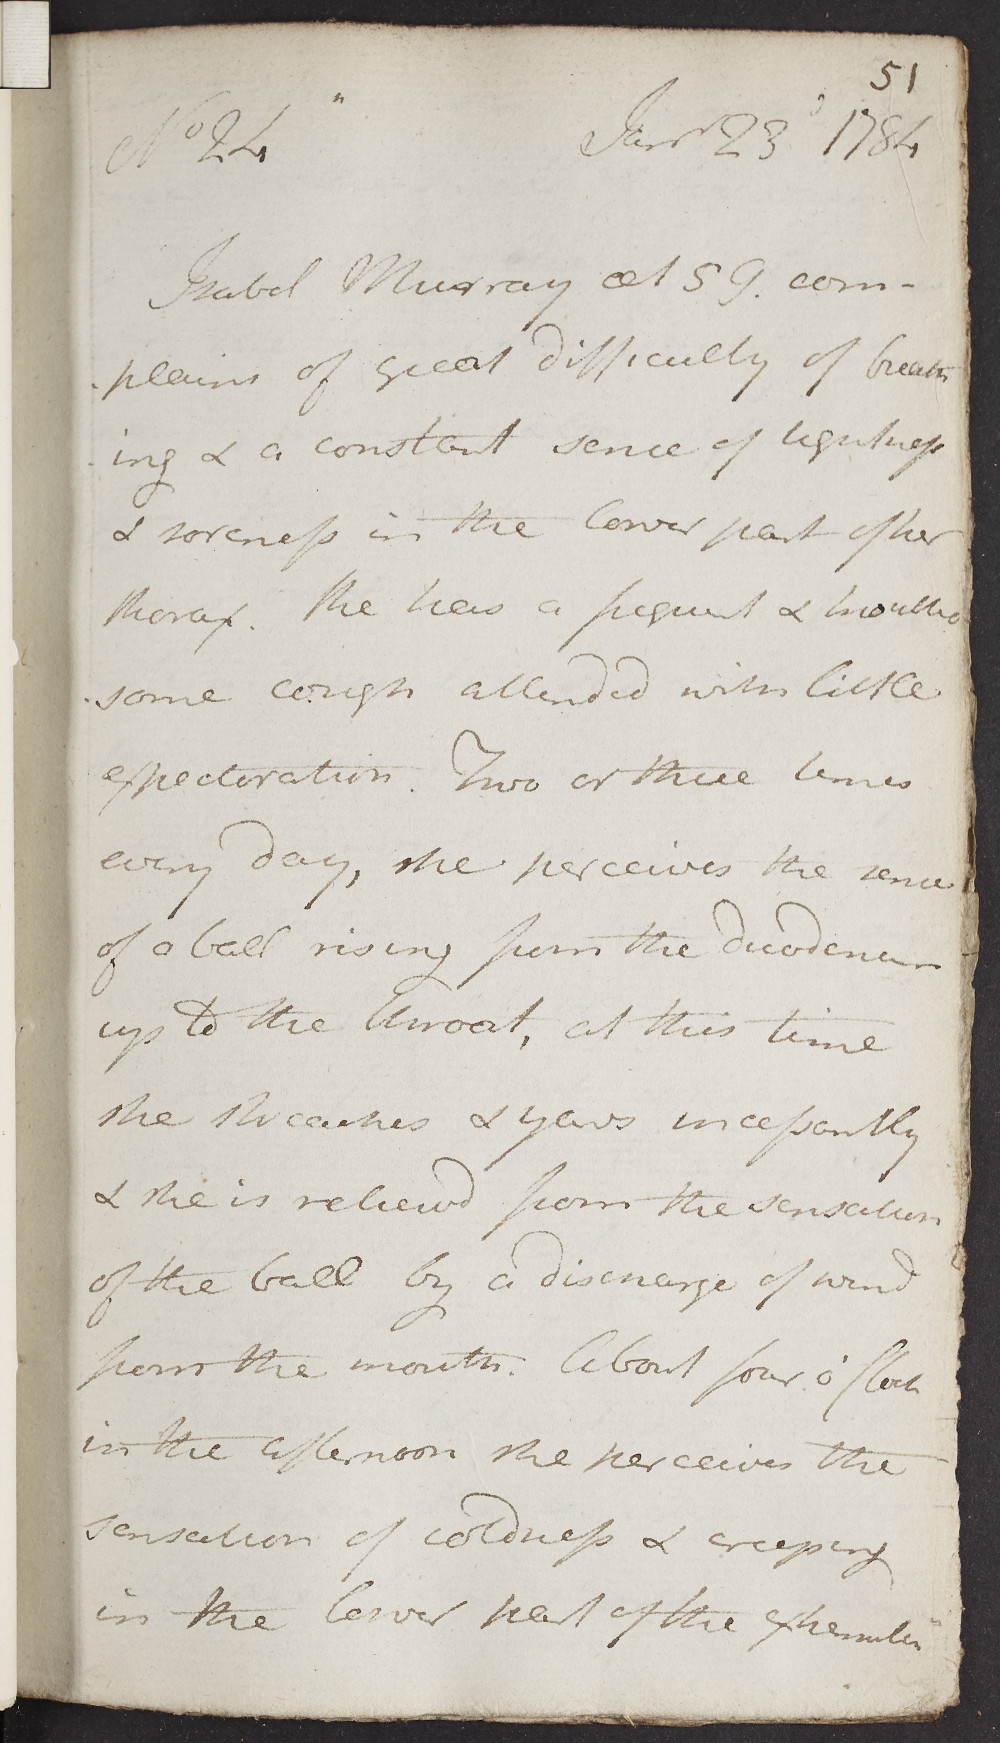 51
No 24 Janr 23d 1784
Isabel Murray aet 59. com-
plains of great difficulty of breath
ing & a constant sence of tightness
& soreness in the lower part of her
thorax. She has a frequent & trouble
some cough attended with little
expectoration. Two or three times
every day, she perceives the sence
of a ball rising from the duodenum
up to the throat, at this time
she streaches & yawns incessantly
& she is relievd from the sensation
of the ball by a discharge of wind
from the mouth. About four o'Clock
in the afternoon she perceives the
sensation of coldness & creeping
in the lower part of the